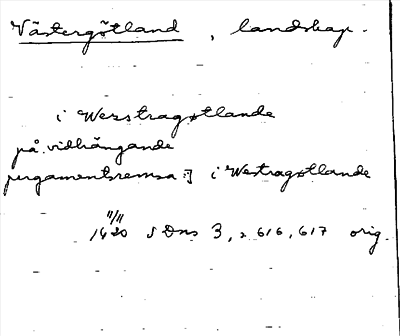 Västergötland, landskap.
i Wæsstragøtlande
på vidhängande
pergamentsremsa:] i Westragøtlande
11/11
1420 SDns 3, s 616, 617 orig.